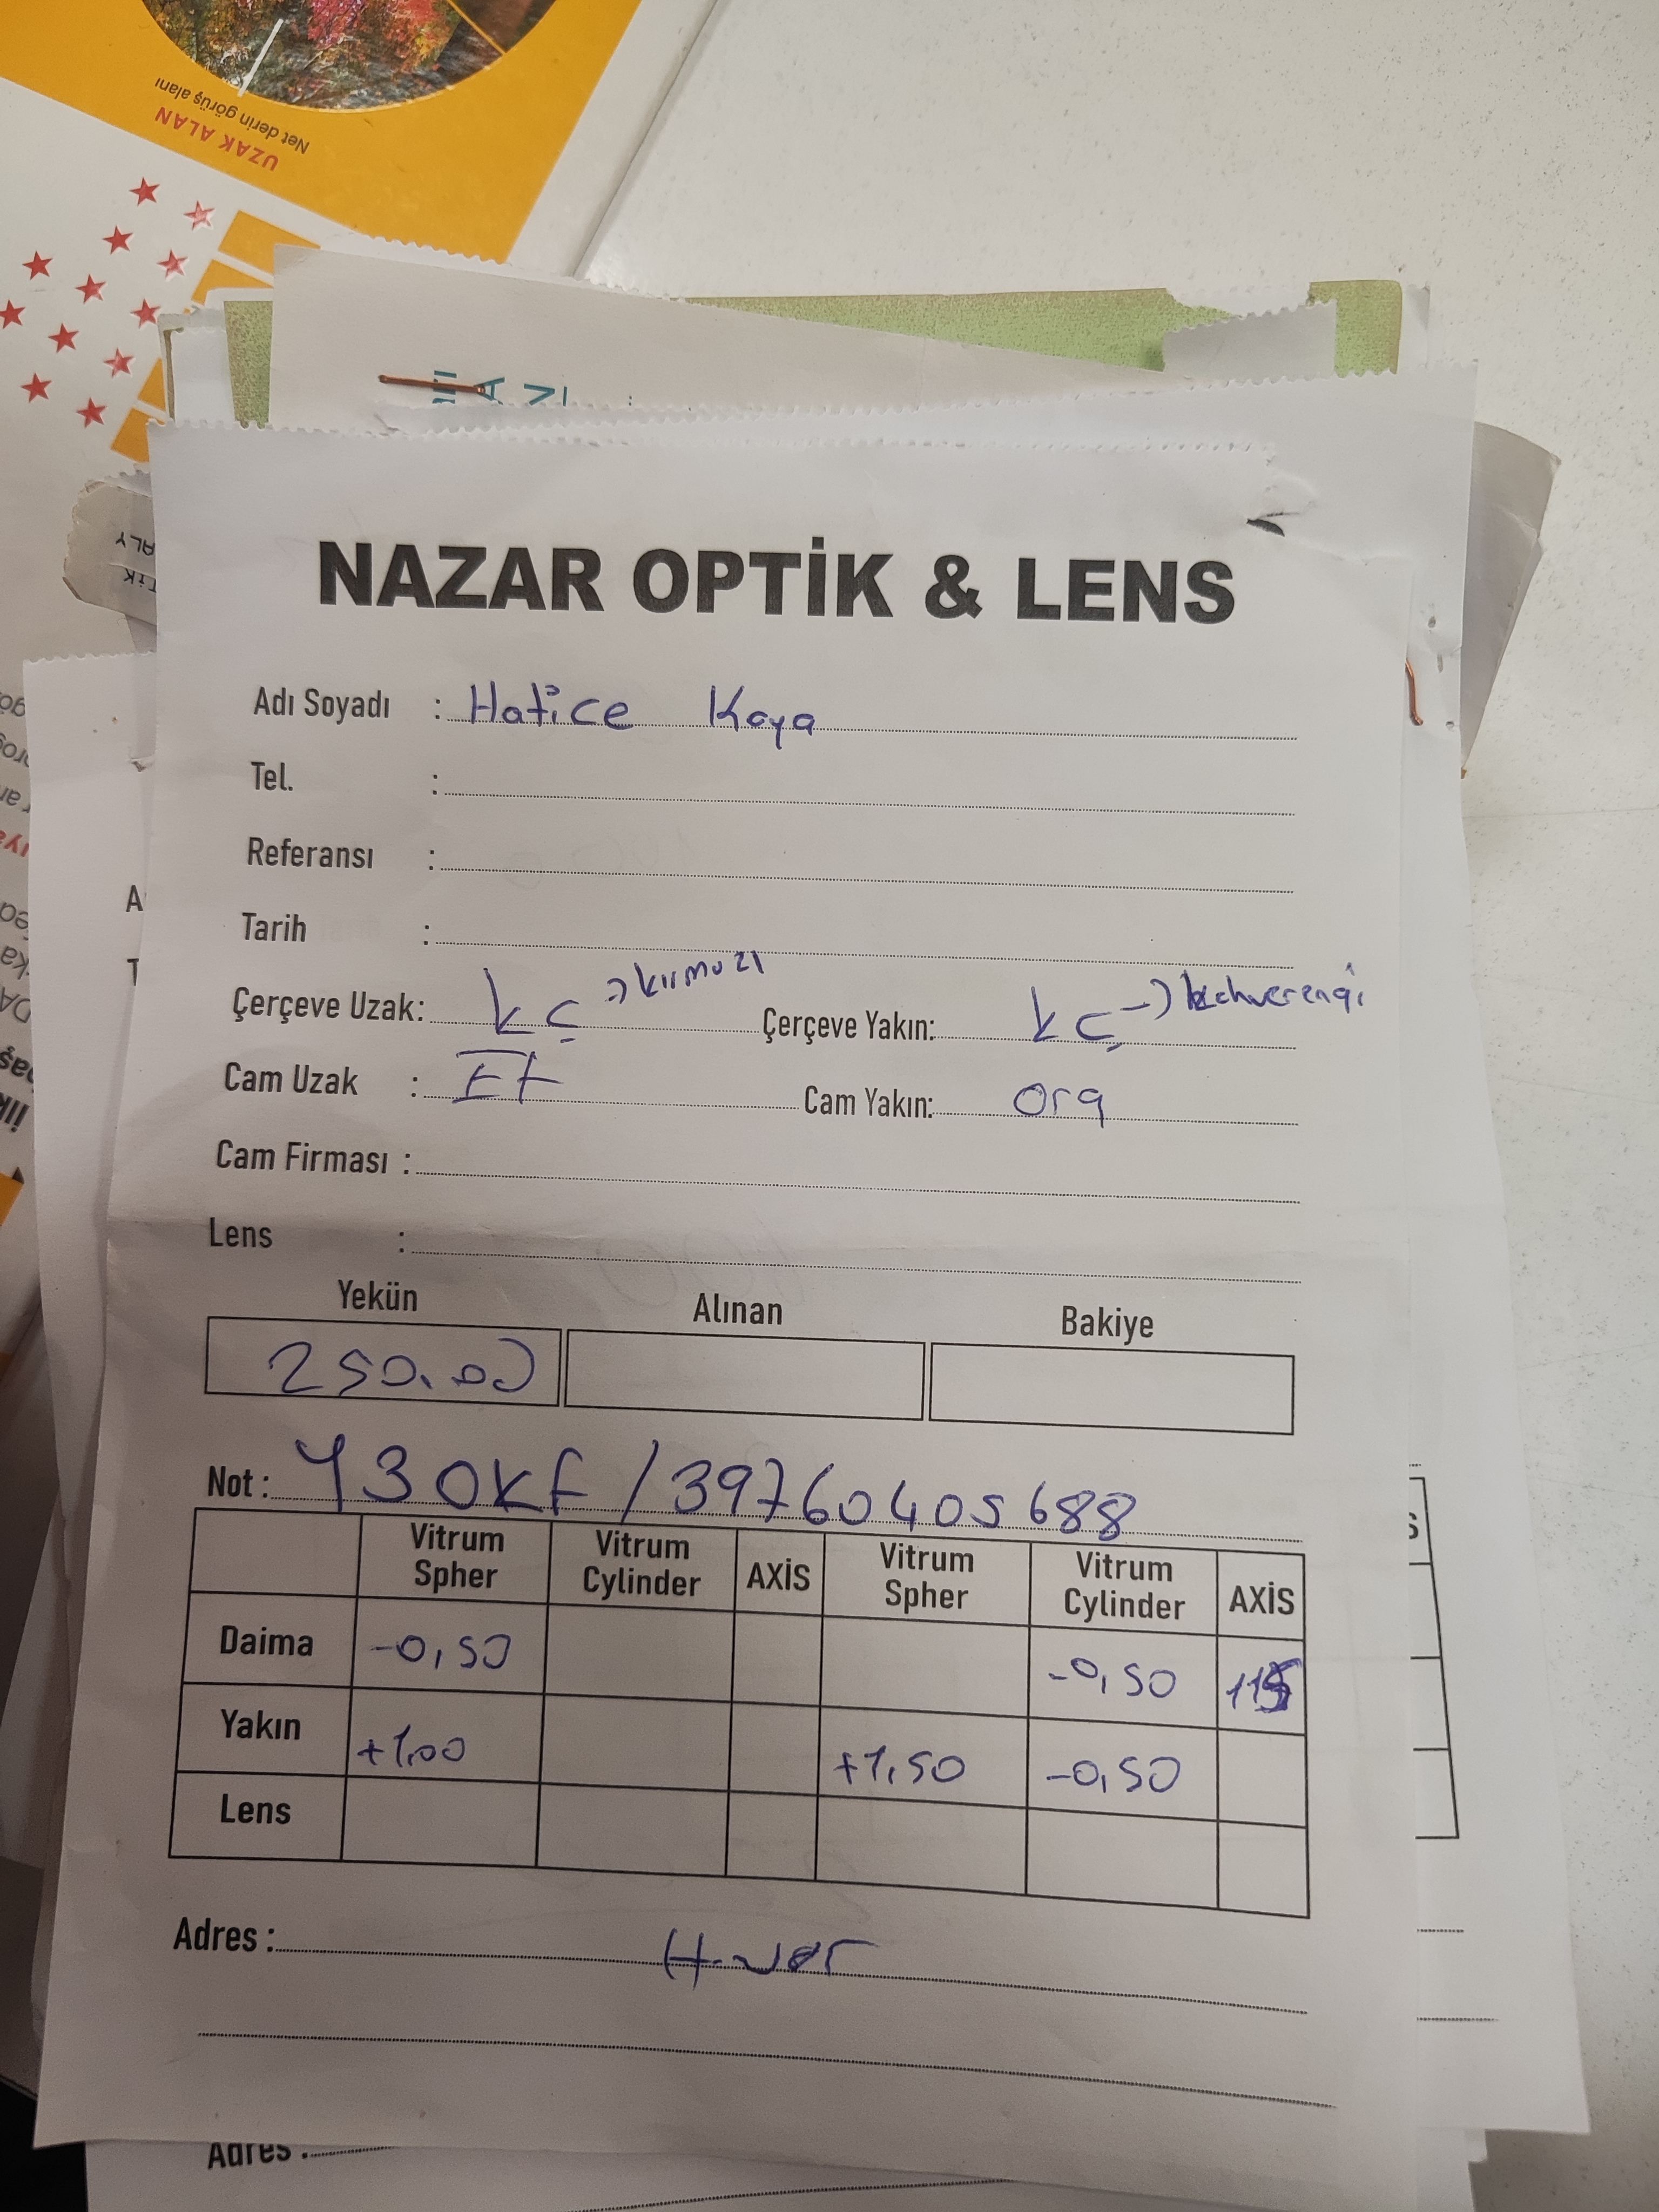 Net derin görüş alanı
UZAK ALAN
NAZAR OPTİK & LENS
Adı Soyadı : Hatice Kaya
Tel. :
Referansı :
Tarih :
Çerçeve Uzak: kç → kırmızı Çerçeve Yakın: kç → kahverengi
Cam Uzak : Cam Yakın: org
Cam Firması :
Lens :
Yekün Alınan Bakiye
250.00
Not : Y30KF / 39760405688
Vitrum Spher Vitrum Cylinder AXİS Vitrum Spher Vitrum Cylinder AXİS
Daima -0,50 -0,50 115
Yakın +1,00 +1,50 -0,50
Lens
Adres :
Adres :